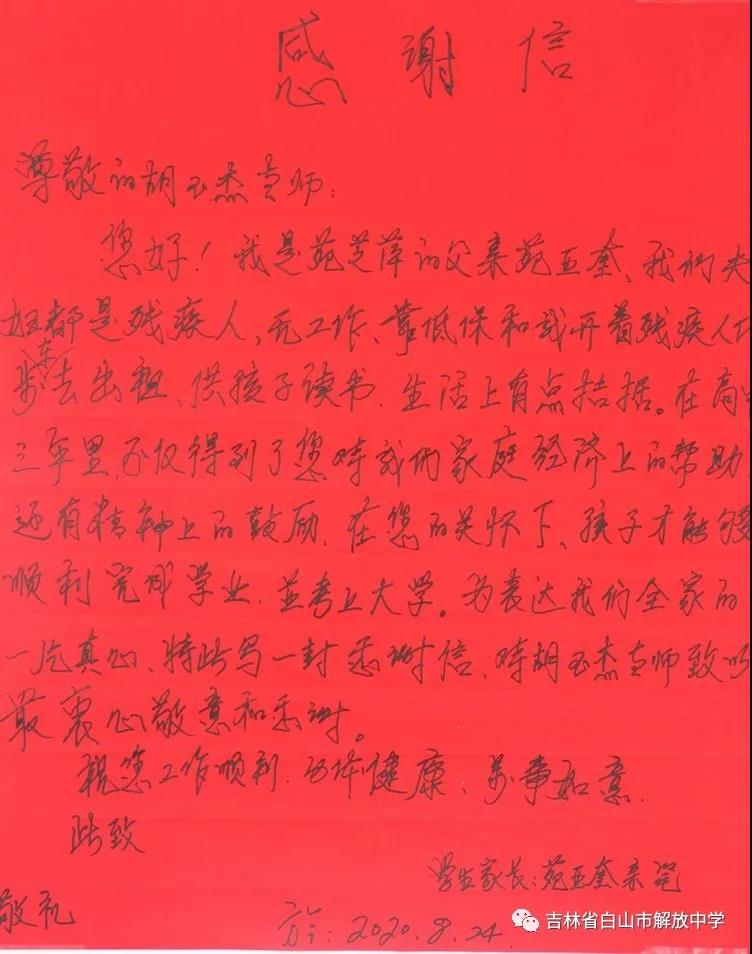 感谢信
尊敬的胡玉杰老师：
您好！我是苑芝萍的父亲苑亚奎、我们夫
妇都是残疾人，无工作、靠低保和我开着残疾人代
步车去出租、供孩子读书、生活上有点拮据。在高中
三年里，不仅得到了您对我们家庭经济上的帮助
还有精神上的鼓励、在您的关怀下、孩子才能够
顺利完成学业、并考上大学。为表达我们全家的
一片真心、特此写一封感谢信、对胡玉杰老师致以
最衷心敬意和感谢。
祝您工作顺利、身体健康、万事如意.
此致
学生家长：苑亚奎亲笔
敬礼
2020.8.24.
吉林省白山市解放中学